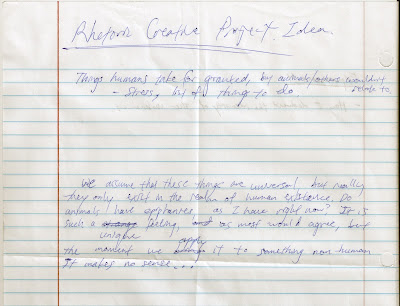 Rhetoric Creative Project Idea.
Things humans take for granted, but animals/others wouldn't
relate to
- Stress, list of things to do
We assume that these things are universal, but really
they only exist in the realm of human existence. Do
animals have epiphanies as I have right now? It is
such a feeling, as most would agree, but
unique
apply
the moment we it to something non human
It makes no sense...